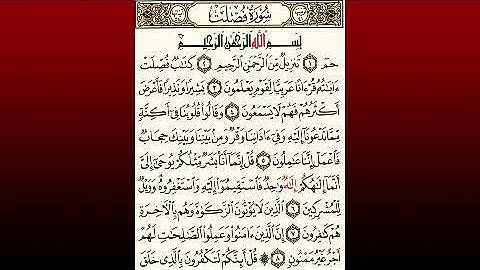 سُورَةُ فُصِّلَتْ
بِسْمِ اللَّهِ الرَّحْمَٰنِ الرَّحِيمِ
حمٓ ١ تَنزِيلٌ مِّنَ الرَّحْمَٰنِ الرَّحِيمِ ٢ كِتَابٌ فُصِّلَتْ
ءَايَاتُهُۥ قُرْءَانًا عَرَبِيًّا لِّقَوْمٍ يَعْلَمُونَ ٣ بَشِيرًا وَنَذِيرًا فَأَعْرَضَ
أَكْثَرُهُمْ فَهُمْ لَا يَسْمَعُونَ ٤ وَقَالُوا۟ قُلُوبُنَا فِىٓ أَكِنَّةٍ
مِّمَّا تَدْعُونَآ إِلَيْهِ وَفِىٓ ءَاذَانِنَا وَقْرٌ وَمِنۢ بَيْنِنَا وَبَيْنِكَ حِجَابٌ
فَاعْمَلْ إِنَّنَا عَامِلُونَ ٥ قُلْ إِنَّمَآ أَنَا۠ بَشَرٌ مِّثْلُكُمْ يُوحَىٰٓ إِلَىَّ
أَنَّمَآ إِلَٰهُكُمْ إِلَٰهٌ وَاحِدٌ فَاسْتَقِيمُوٓا۟ إِلَيْهِ وَاسْتَغْفِرُوهُ وَوَيْلٌ
لِّلْمُشْرِكِينَ ٦ الَّذِينَ لَا يُؤْتُونَ الزَّكَوٰةَ وَهُم بِالْءَاخِرَةِ
هُمْ كَافِرُونَ ٧ إِنَّ الَّذِينَ ءَامَنُوا۟ وَعَمِلُوا۟ الصَّالِحَاتِ لَهُمْ
أَجْرٌ غَيْرُ مَمْنُونٍ ٨ قُلْ أَئِنَّكُمْ لَتَكْفُرُونَ بِالَّذِى خَلَقَ